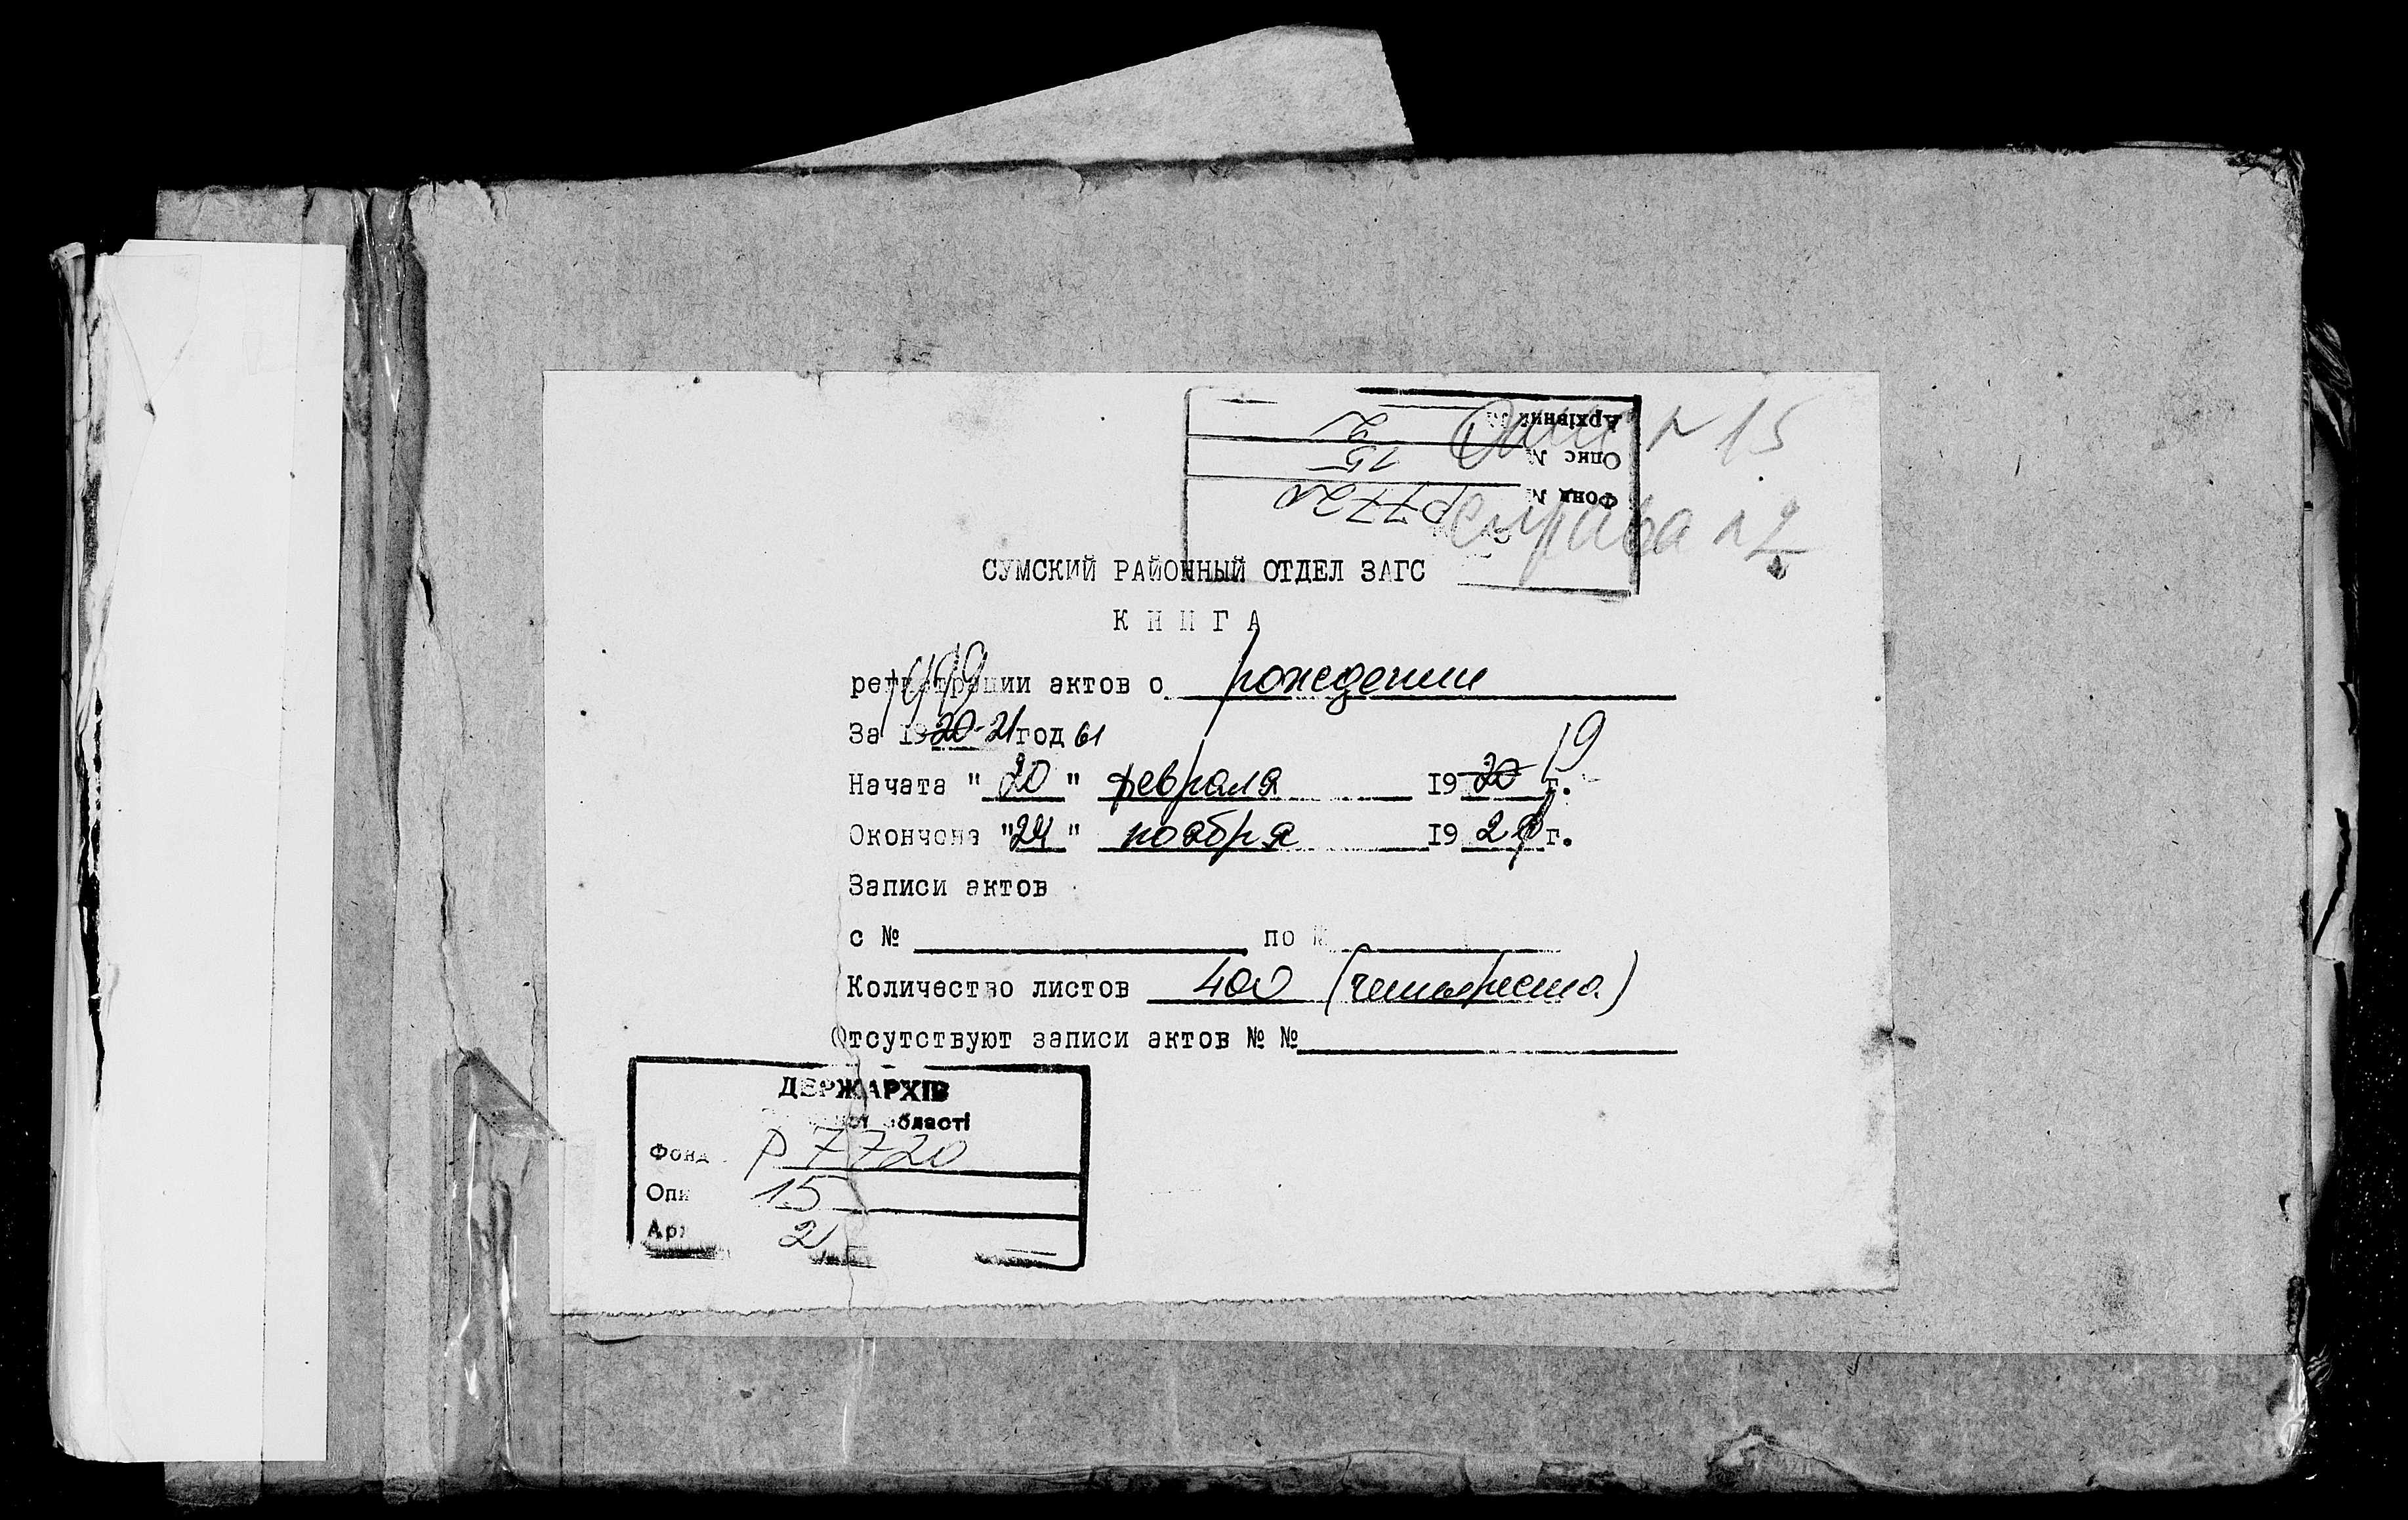 Опис № 15
справа № 2
Архівний № 2
Опис № 15
Фонд № Р7720
СУМСКИЙ РАЙОННЫЙ ОТДЕЛ ЗАГС
КНИГА
регистрации актов о рождении
1919
За 1920-21 год ы
Начата "20" февраля 1920 г.
19
Окончена "24" ноября 192 г.
Записи актов
с № по №
Количество листов 400 (четыреста)
Отсутствуют записи актов № №
ДЕРЖАРХІВ
області
Фонд Р 7720
Опи 15
Арх 2